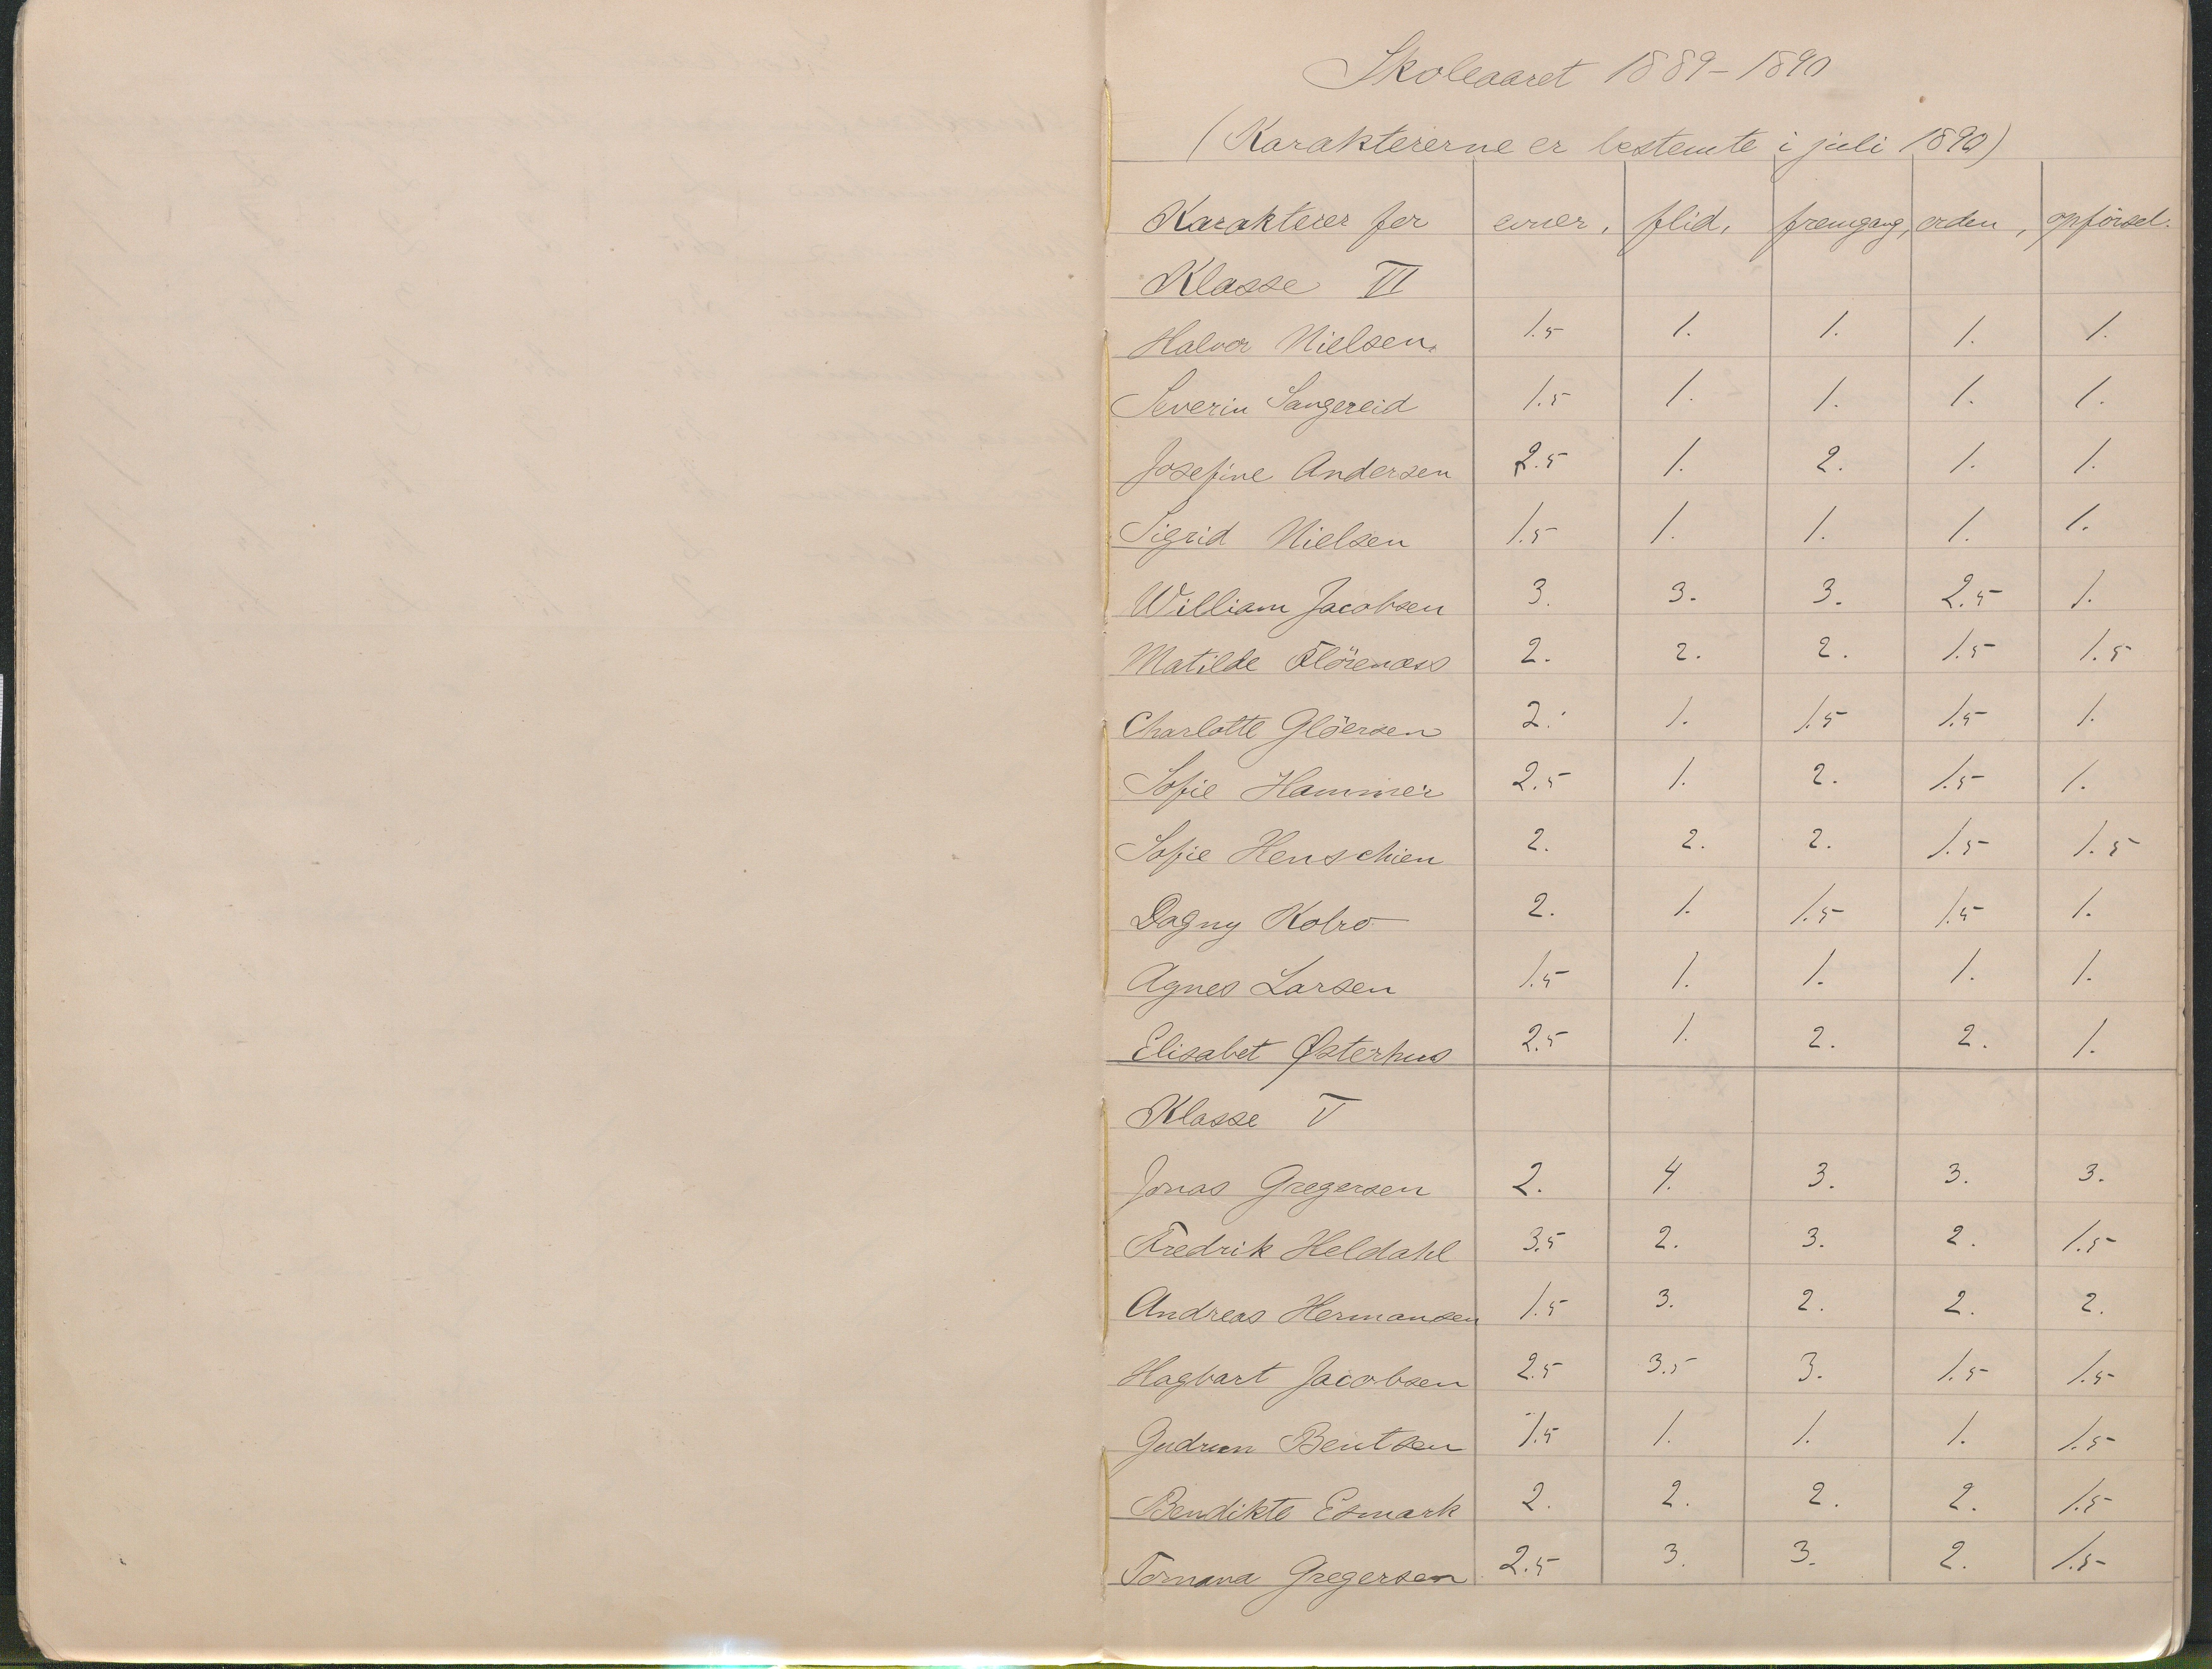 Skoleaaret 1889-1890
(Karaktererne er bestemte i juli 1890)
Karakterer for evner, flid, fremgang, orden, opförsel.
Klasse VI
Halvor Nielsen. 1.5 1. 1. 1. 1.
Severin Sangereid 1.5 1. 1. 1. 1.
Josefine Andersen 2.5 1. 2. 1. 1.
Sigrid Nielsen 1.5 1. 1. 1. 1.
William Jacobsen 3. 3. 3. 2.5 1.
Matilde Flörenæss 2. 2. 2. 1.5 1.5
Charlotte Glöersen 2. 1. 1.5 1.5 1.
Sofie Hammer 2.5 1. 2. 1.5 1.
Sofie Henschien 2. 2. 2. 1.5 1.5
Dagny Kobro 2. 1. 1.5 1.5 1.
Agnes Larsen 1.5 1. 1. 1. 1.
Elisabet Østerhus 2.5 1. 2. 2. 1.
Klasse V
Jonas Gregersen 2. 4. 3. 3. 3.
Fredrik Heldahl 3.5 2. 3. 2. 1.5
Andreas Hermansen 1.5 3. 2. 2. 2.
Hagbart Jacobsen 2.5 3.5 3. 1.5 1.5
Gudrun Bentsen 1.5 1. 1. 1. 1.5
Bendikte Esmark 2. 2. 2. 2. 1.5
Tomana Gregersen 2.5 3. 3. 2. 1.5